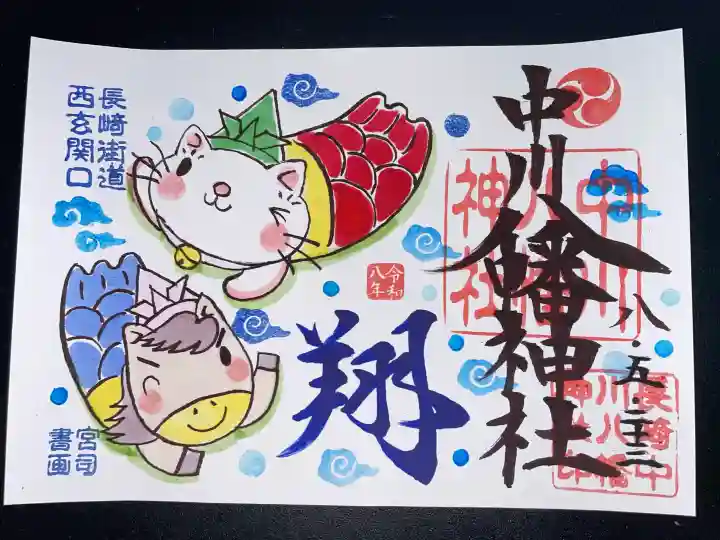 中川八幡神社
八・五・二十三
中川
八幡
神社
長崎中
川八幡
神社印
翔
令和
八年
長崎街道
西玄関口
宮司
書画